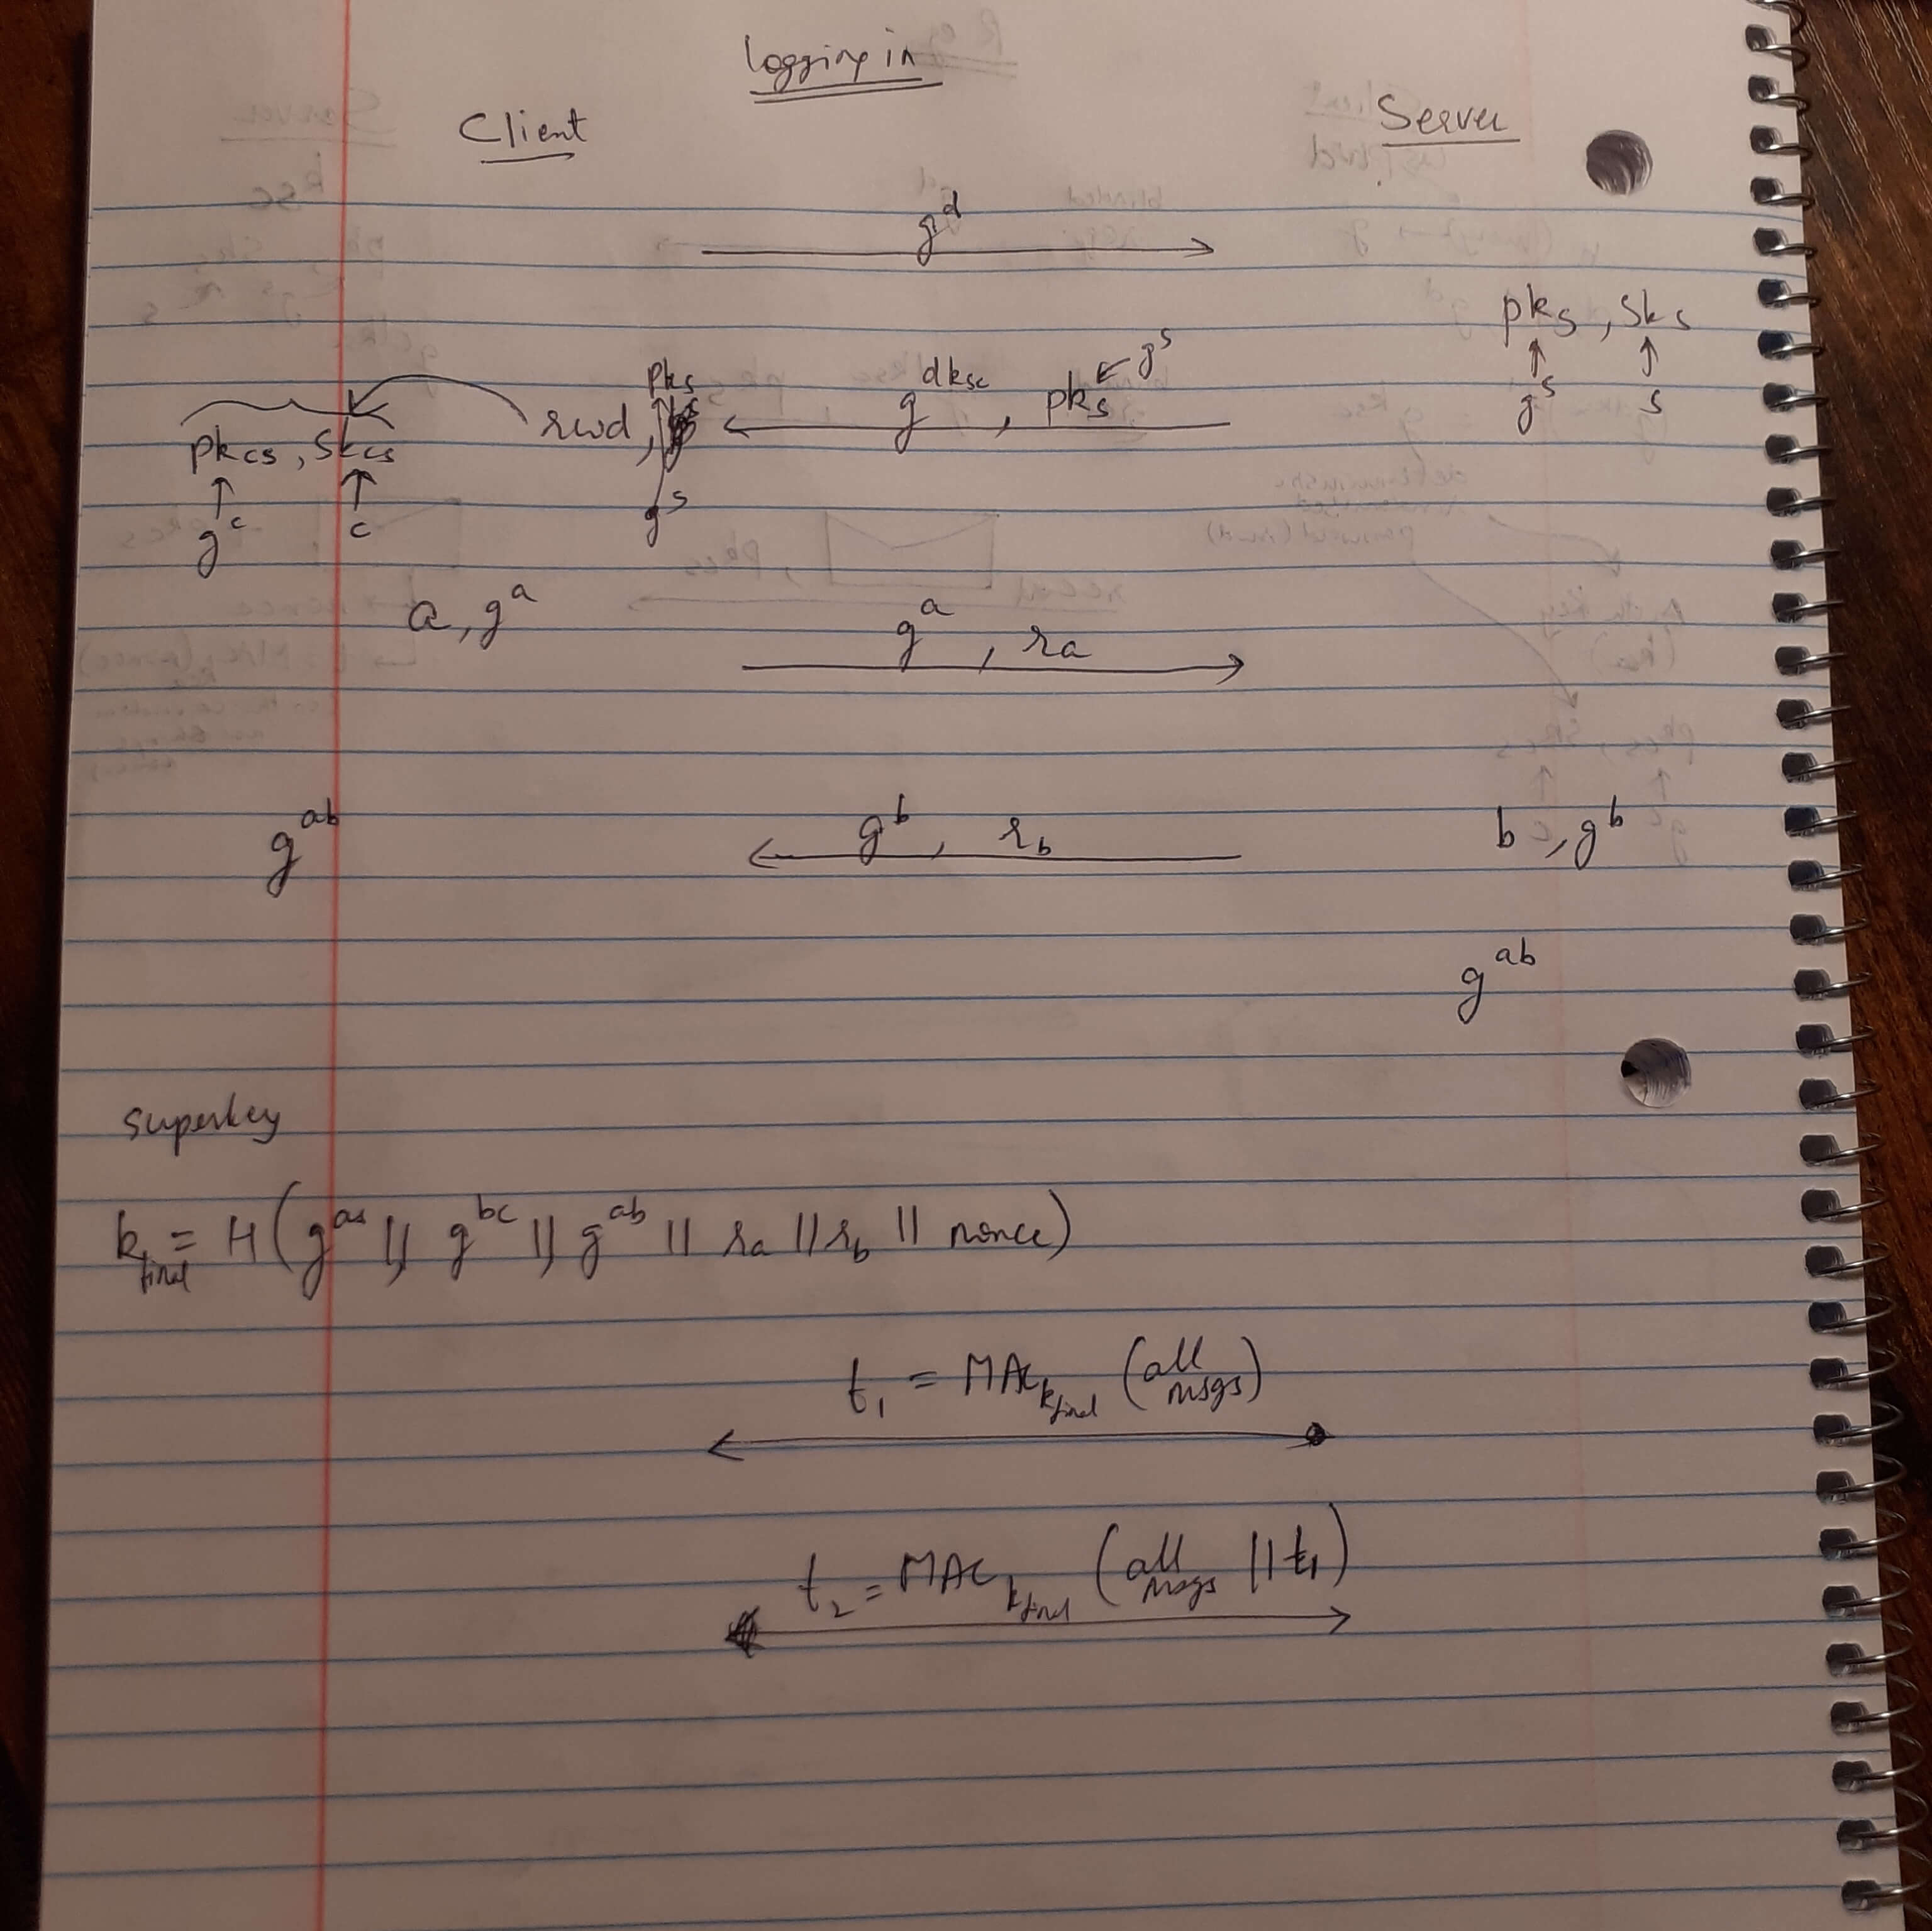 Logging in
Client
Server
g^d
pks, sks
↑ ↑
g^s s
pkcs, skcs
↑ ↑
g^c c
rwd, pks
g^s
g^dksc, pks ← g^s
a, g^a
g^a, ra
g^ab
g^b, rb
b, g^b
g^ab
Superkey
k_final = H(g^as || g^bc || g^ab || ra || rb || nonce)
t1 = MAC_kfinal (all msgs)
t2 = MAC_kfinal (all msgs || t1)